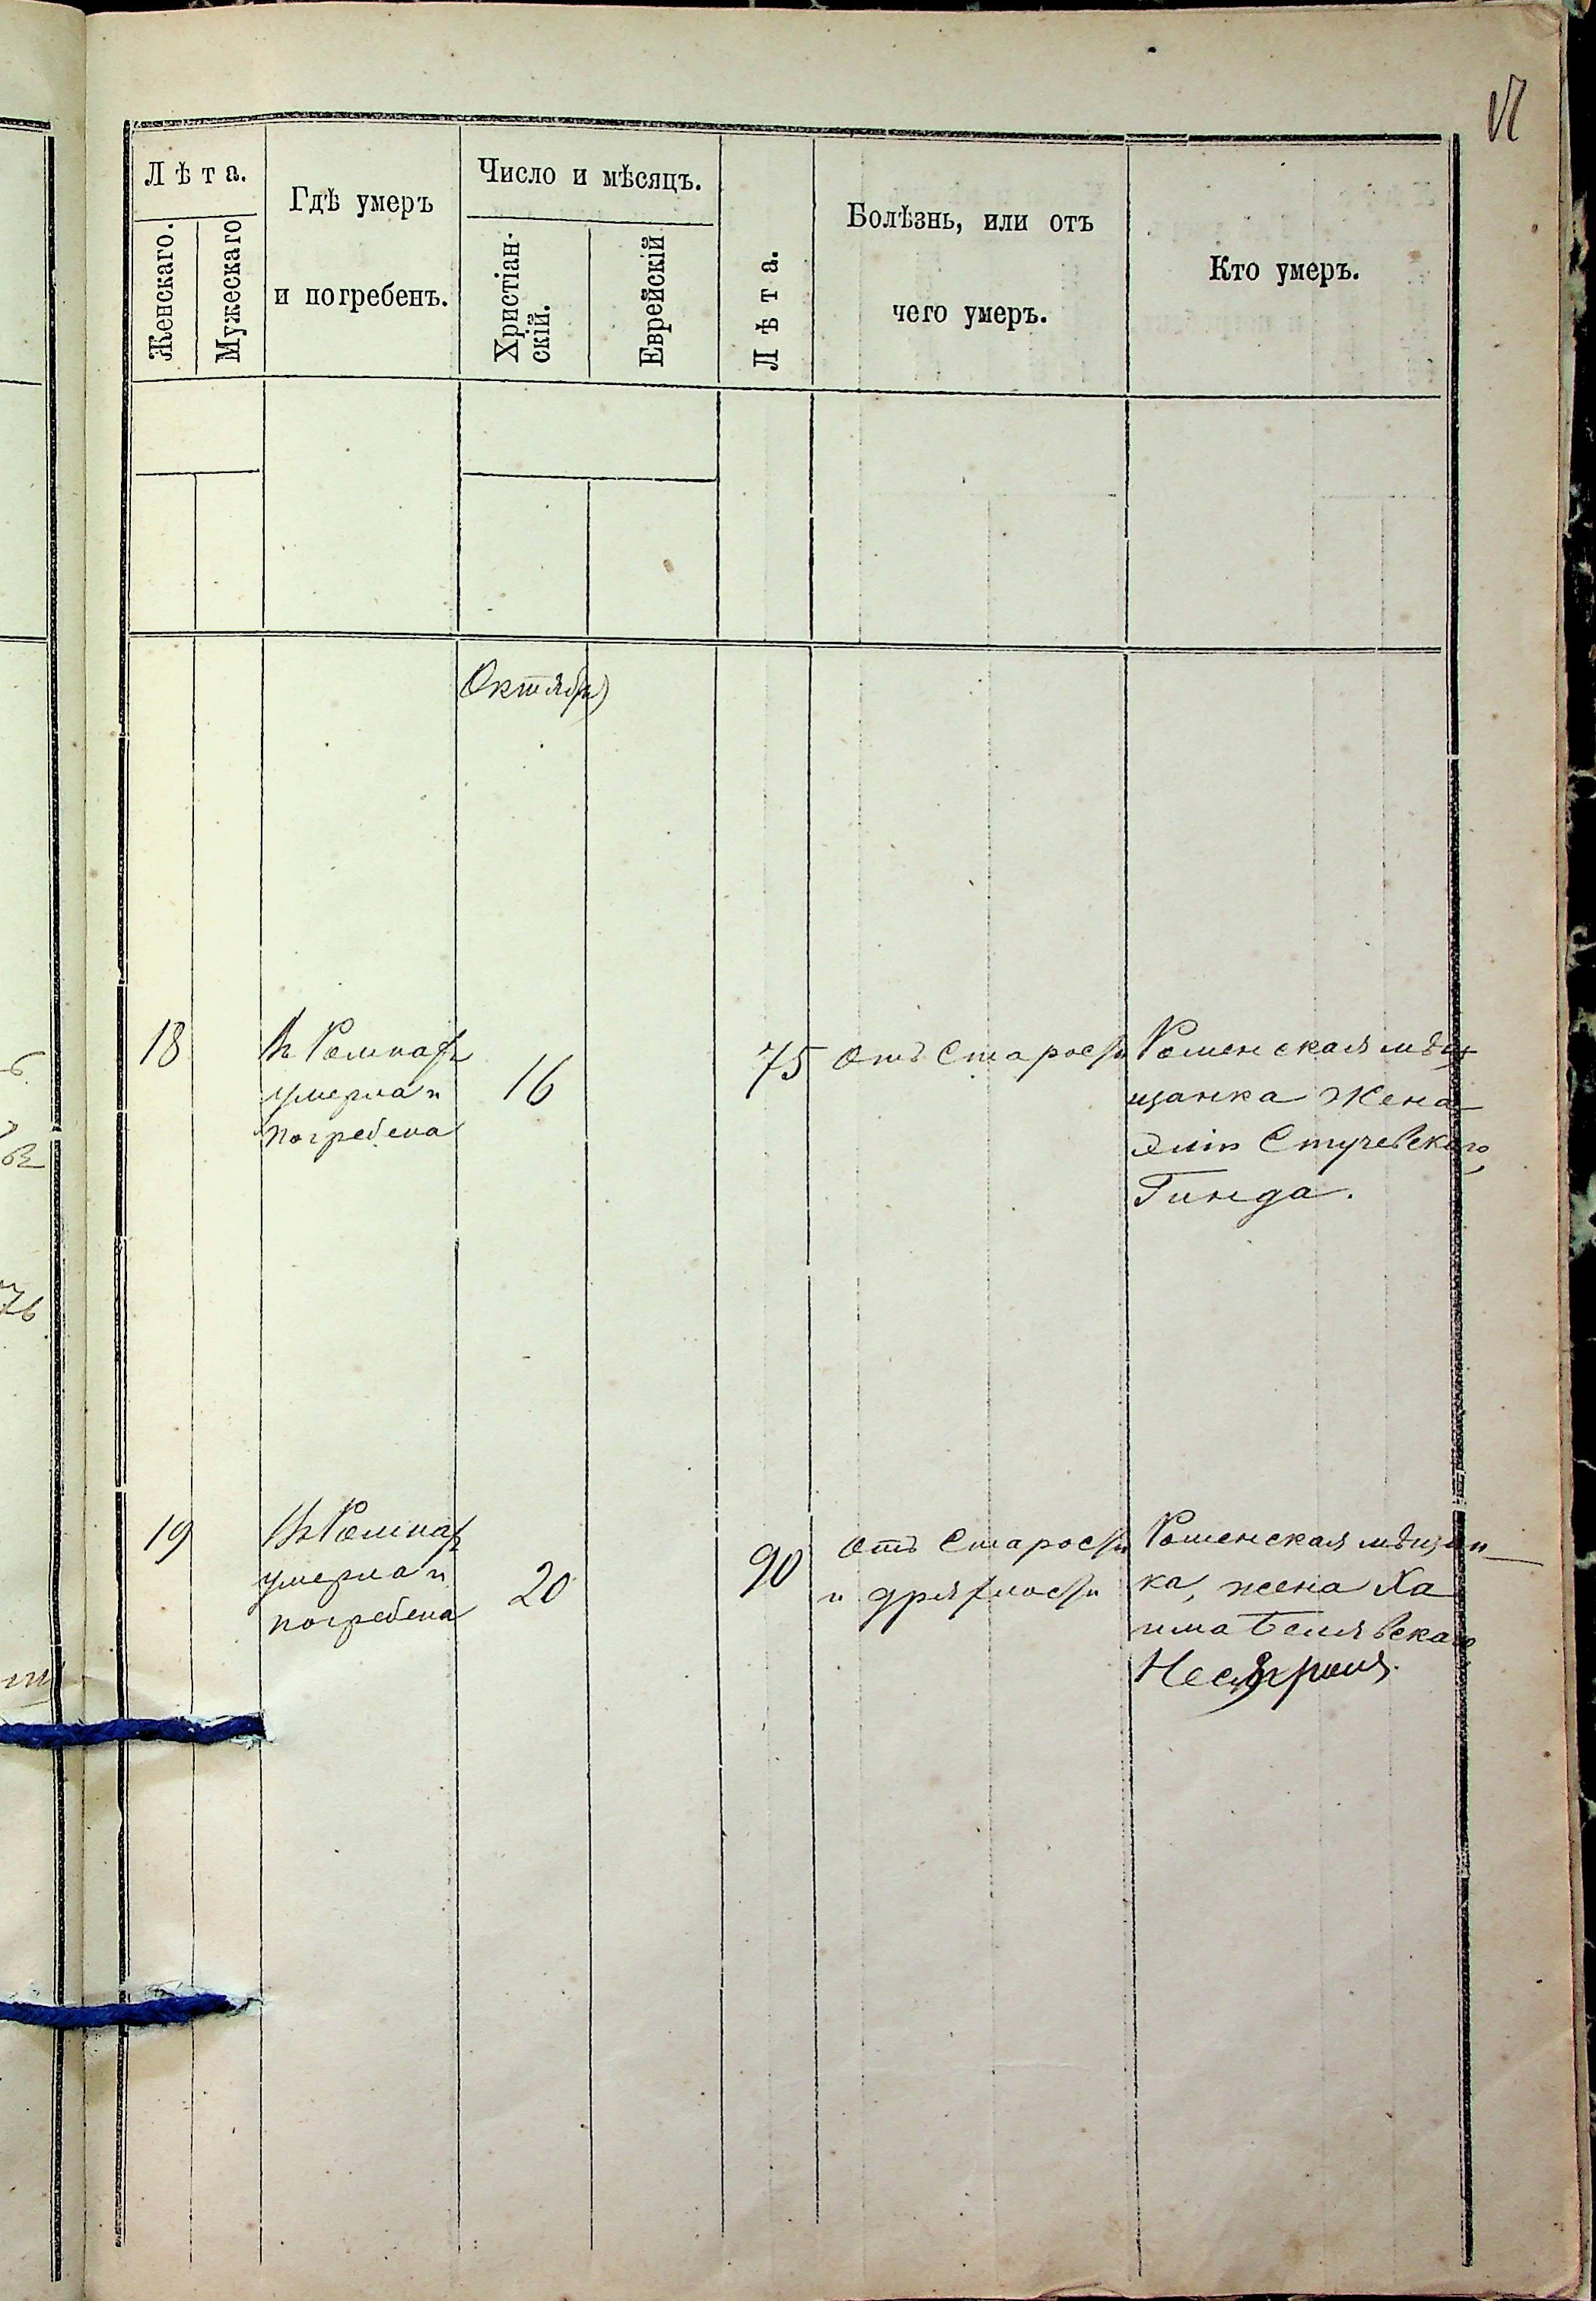 Лѣта.
Женскаго.
Мужескаго
Гдѣ умеръ
и погребенъ.
Число и мѣсяцъ.
Христіан-
скій.
Еврейскій
Лѣта.
Болѣзнь, или отъ
чего умеръ.
Кто умеръ.
Октября
18
Въ Ромнахъ
умерла и
погребена
16
75
отъ Старости
Роменская мѣ-
щанка жена
Стучевскаго,
Гинда.
19
Въ Ромнахъ
умерла и
погребена
20
90
отъ Старости
и дряхлости
Роменская мѣщан-
ка, жена Ха
има Белявскаго